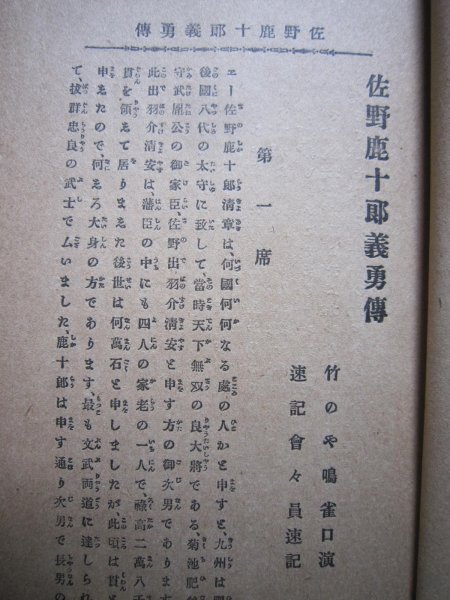 佐野鹿十郎義勇傳
佐野鹿十郎義勇傳
竹のや鳴雀口演
速記會々員速記
第一席
ヱー佐野鹿十郎清章は、何國何なる處の人かと申すと、九州は肥
後國八代の太守に致して、當時天下無双の良大將である、菊池肥
守武屋公の御家臣、佐野出羽介清安と申す方の御次男であります
此出羽介清安は、藩臣の中にも四人の家老の一人で、祿高二萬八千
貫を領えて居りまえた後世は何萬石と申しましたが、此頃は貫と
申えたので、何えろ大身の方であります、最も文武両道に達しられ
て、拔群忠良の武士で厶いました、鹿十郎は申す通り次男で長男の